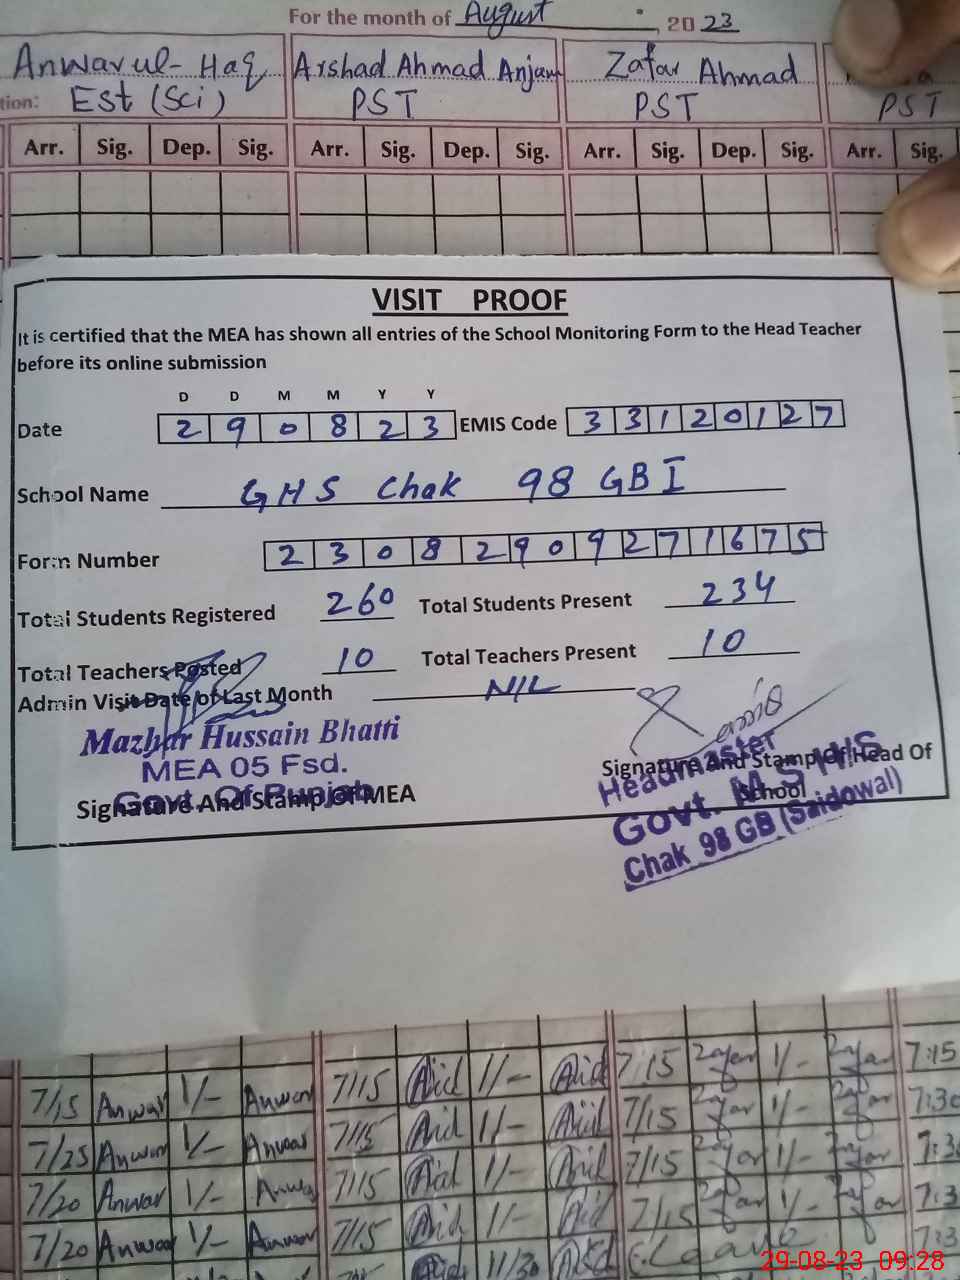 For the month of August, 2023
Anwarul-Haq Arshad Ahmad Anjam Zafar Ahmad
tion: Est (Sci) PST PST PST
Arr. Sig. Dep. Sig. Arr. Sig. Dep. Sig. Arr. Sig. Dep. Sig. Arr. Sig.
VISIT PROOF
It is certified that the MEA has shown all entries of the School Monitoring Form to the Head Teacher
before its online submission
D D M M Y Y
Date 290823 EMIS Code 33120127
School Name GHS Chak 98 GB I
Form Number 23082909271675
Total Students Registered 260 Total Students Present 234
Total Teachers Posted 10 Total Teachers Present 10
Admin Visit Date of Last Month NIL
Mazhar Hussain Bhatti
MEA 05 Fsd.
Govt. Of Punjab
Signature And Stamp of MEA
Signature And Stamp of Head Of
School
Headmaster
Govt. M S HS
Chak 98 GB (Saidowal)
7/15 Anwar 1/- Anwar 7/15 1/- 7/15 Zafar 1/- Zafar 7:15
7/25 Anwar 1/- Anwar 7/15 1/- 7/15 Zafar 1/- Zafar 7:30
7/20 Anwar 1/- Anwar 7/15 1/- 7/15 Zafar 1/- Zafar
7/20 Anwar 1/- Anwar 7/15 1/- 7/15 Zafar 1/- Zafar
11/30 Leave
29-08-23 09:28